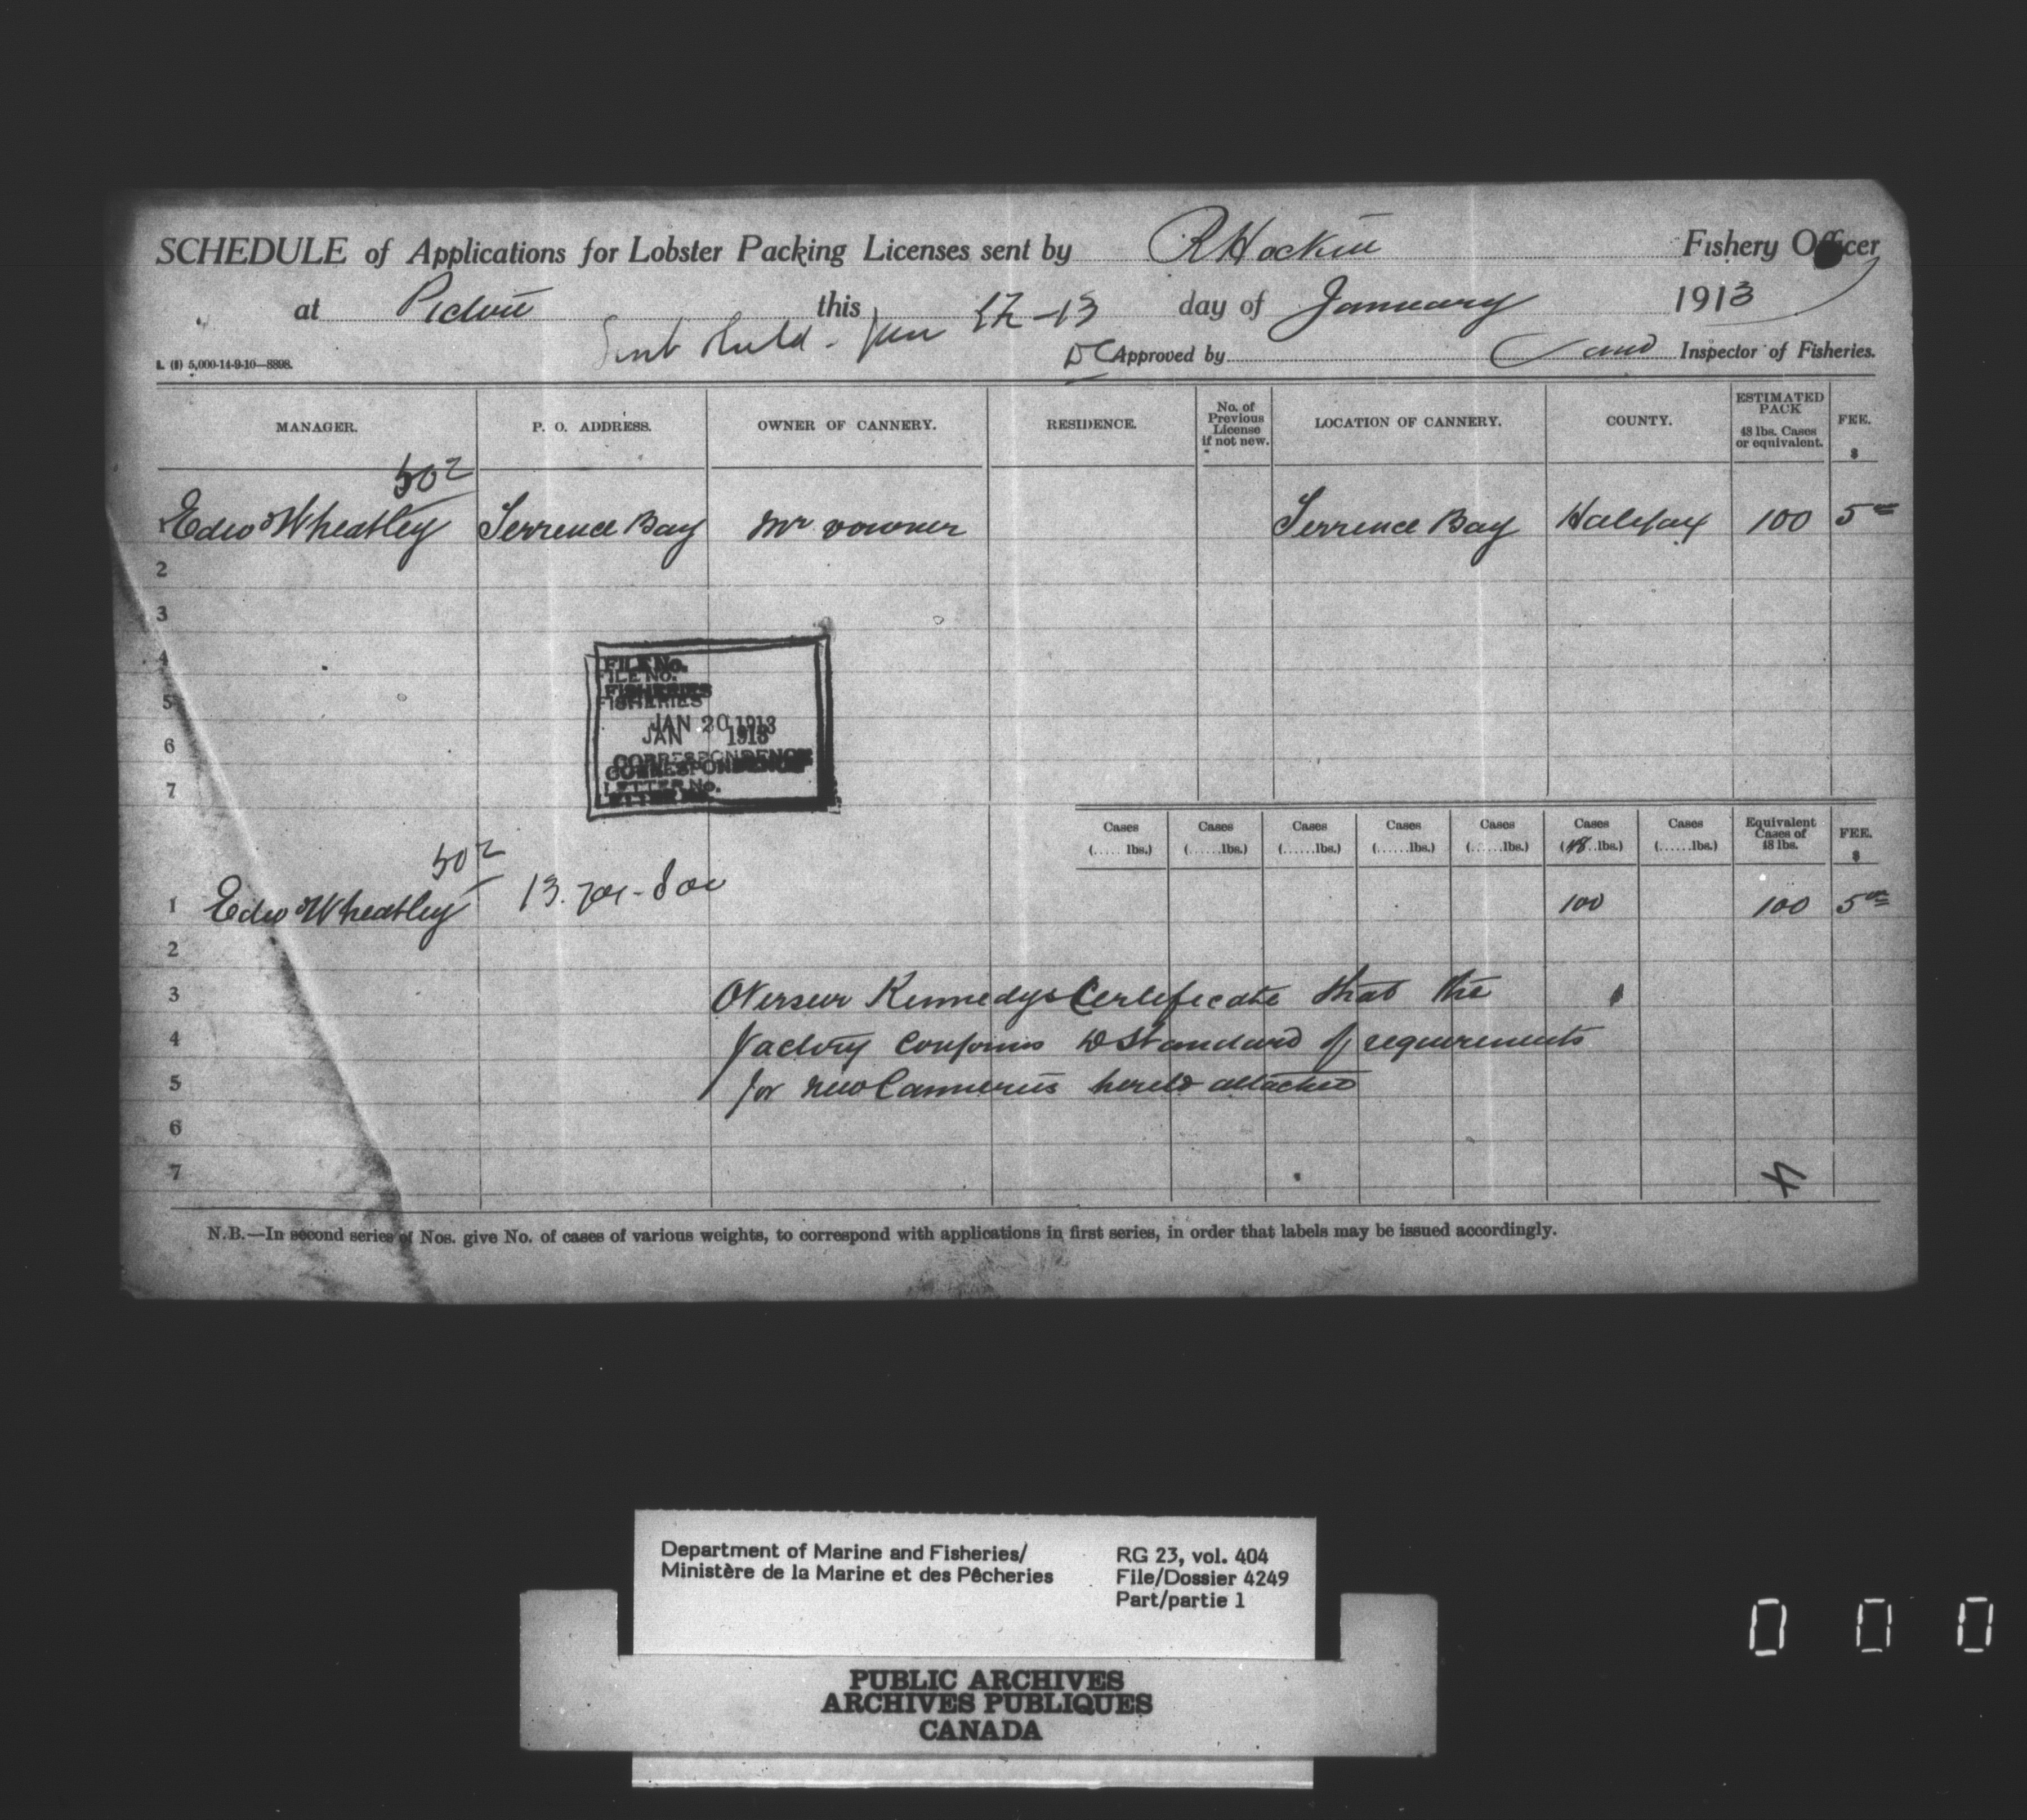 SCHEDULE of Applications for Lobster Packing Licenses sent by R Hockin Fishery Officer
at Pictou this day of January 1913
Jan 22-13
L. (8) 5,000-14-9-10—8898.
Approved by and Inspector of Fisheries.
MANAGER. P. O. ADDRESS. OWNER OF CANNERY. RESIDENCE. No. of Previous License if not new. LOCATION OF CANNERY. COUNTY. ESTIMATED PACK 48 lbs. Cases or equivalent. FEE. $
502
1 Edw Wheatley Terrence Bay Mr & owner Terrence Bay Halifax 100 5 00
2
3
4
5
6
7
FILE No.
FISHERIES
JAN 20 1913
CORRESPONDENCE
LETTER No.
Cases (......lbs.) Cases (......lbs.) Cases (......lbs.) Cases (......lbs.) Cases (......lbs.) Cases (48..lbs.) Cases (......lbs.) Equivalent Cases of 48 lbs. FEE. $
502
1 Edw Wheatley 13.701-800 100 100 5 00
2
3 Overseer Kennedys Certificate that the
4 factory conforms to Standard of requirements
5 for new Canneries hereto attached
6
7
N.B.—In second series of Nos. give No. of cases of various weights, to correspond with applications in first series, in order that labels may be issued accordingly.
Department of Marine and Fisheries/
Ministère de la Marine et des Pêcheries
RG 23, vol. 404
File/Dossier 4249
Part/partie 1
PUBLIC ARCHIVES
ARCHIVES PUBLIQUES
CANADA
0 0 0